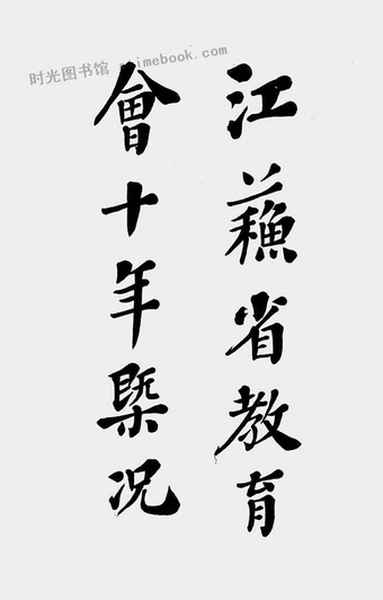 时光图书馆 mimebook.com
江蘓省教育
會十年槩况